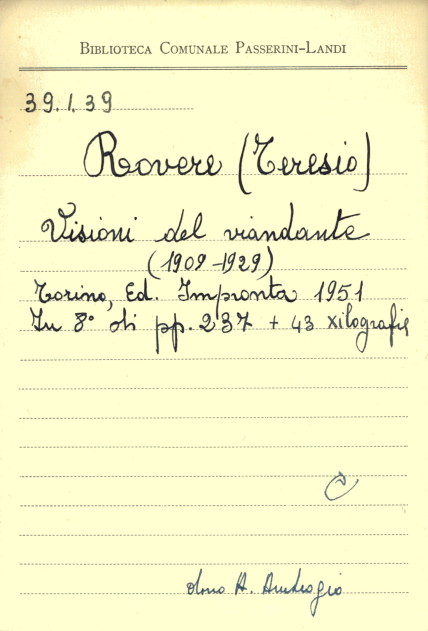 BIBLIOTECA COMUNALE PASSERINI-LANDI
39.I.39
Rovere (Teresio)
Visioni del viandante
(1909-1929)
Torino, Ed. Impronta 1951
In 8° di pp. 237 + 43 xilografie
dono A. Ambrogio